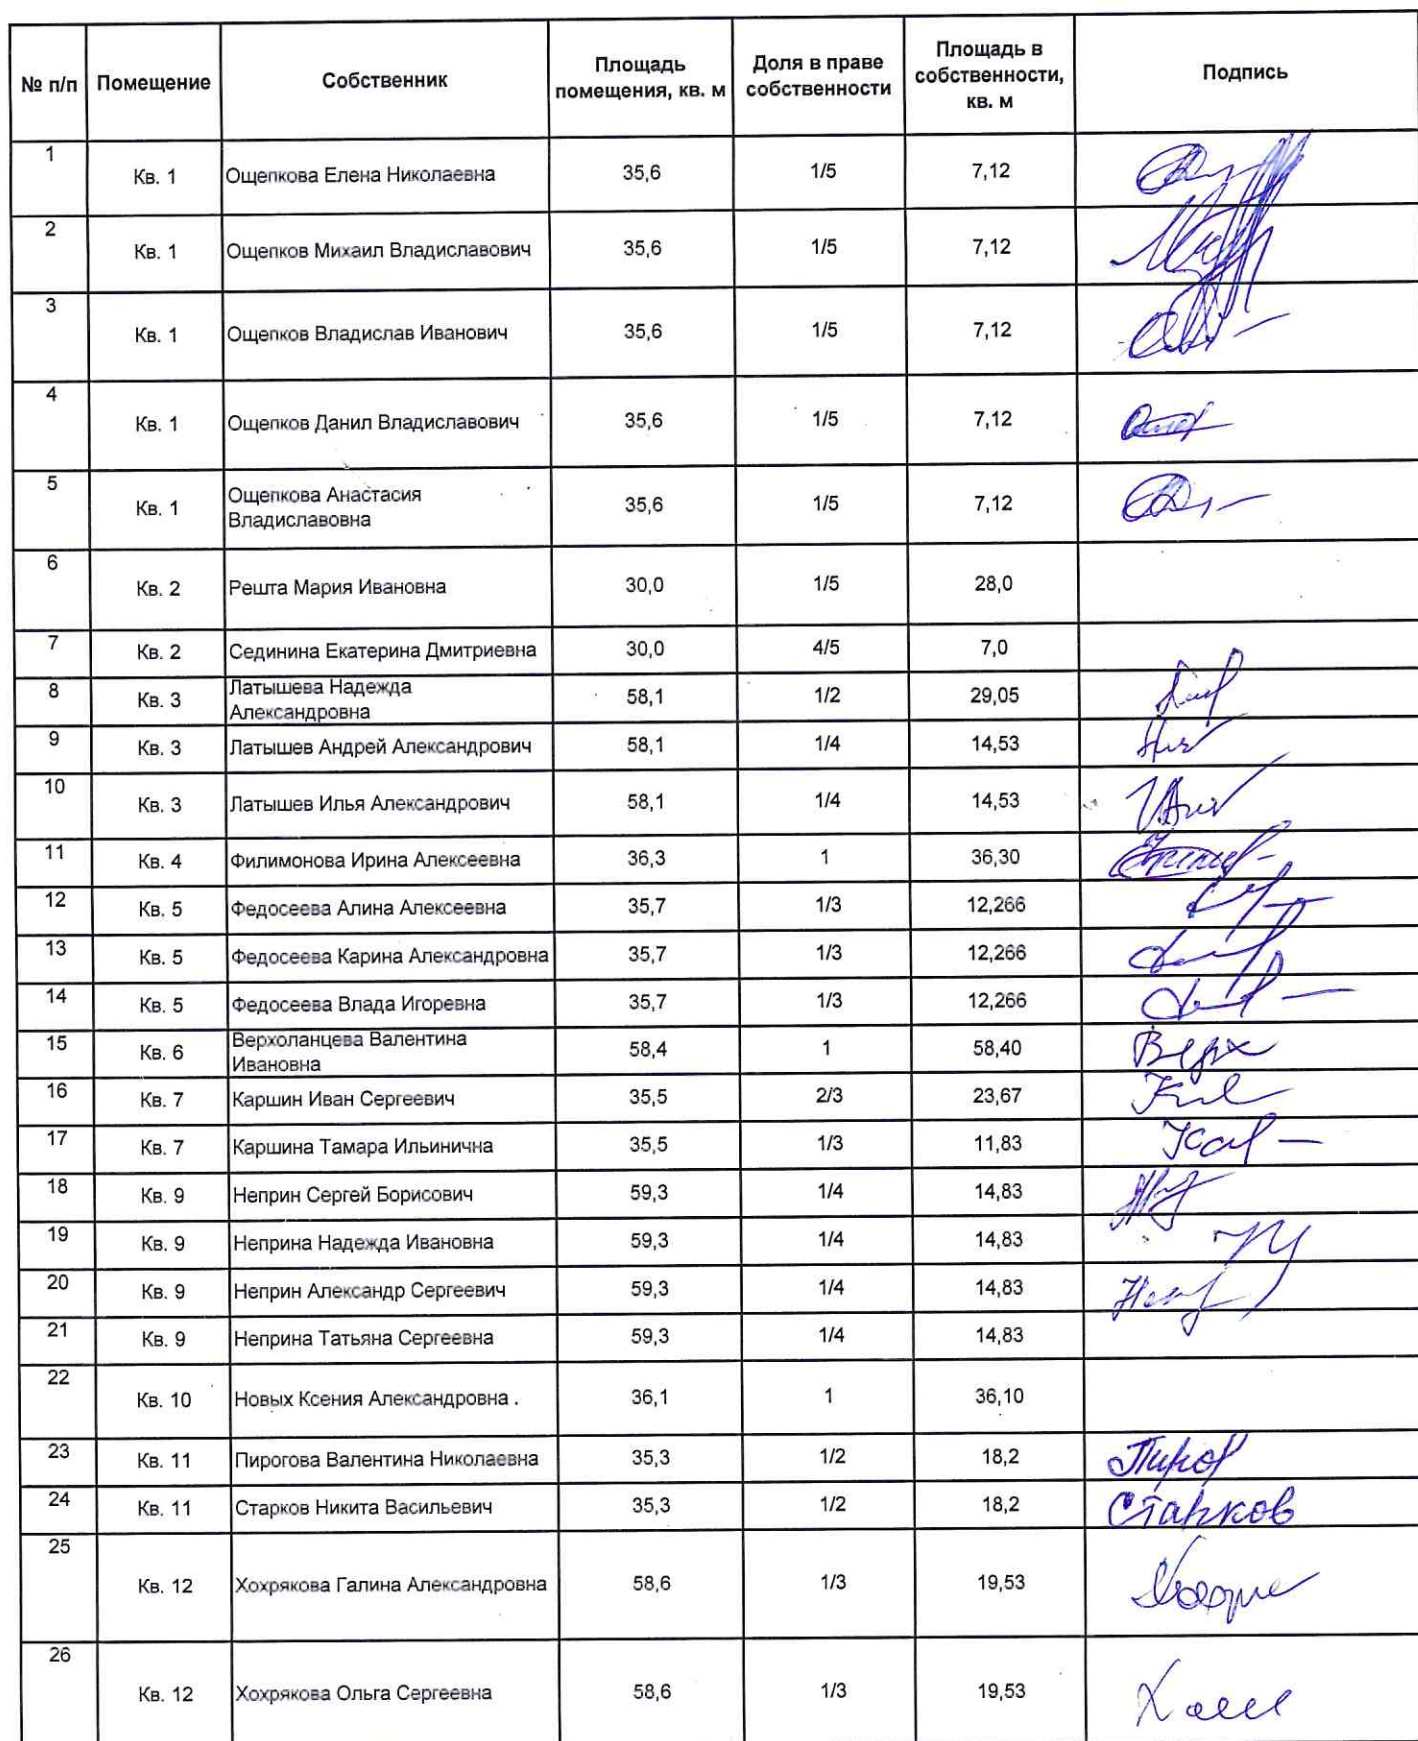 № п/п Помещение Собственник Площадь помещения, кв. м Доля в праве собственности Площадь в собственности, кв. м Подпись
1 Кв. 1 Ощепкова Елена Николаевна 35,6 1/5 7,12
2 Кв. 1 Ощепков Михаил Владиславович 35,6 1/5 7,12
3 Кв. 1 Ощепков Владислав Иванович 35,6 1/5 7,12
4 Кв. 1 Ощепков Данил Владиславович 35,6 1/5 7,12
5 Кв. 1 Ощепкова Анастасия Владиславовна 35,6 1/5 7,12
6 Кв. 2 Решта Мария Ивановна 30,0 1/5 28,0
7 Кв. 2 Сединина Екатерина Дмитриевна 30,0 4/5 7,0
8 Кв. 3 Латышева Надежда Александровна 58,1 1/2 29,05
9 Кв. 3 Латышев Андрей Александрович 58,1 1/4 14,53
10 Кв. 3 Латышев Илья Александрович 58,1 1/4 14,53
11 Кв. 4 Филимонова Ирина Алексеевна 36,3 1 36,30
12 Кв. 5 Федосеева Алина Алексеевна 35,7 1/3 12,266
13 Кв. 5 Федосеева Карина Александровна 35,7 1/3 12,266
14 Кв. 5 Федосеева Влада Игоревна 35,7 1/3 12,266
15 Кв. 6 Верхоланцева Валентина Ивановна 58,4 1 58,40 Верх
16 Кв. 7 Каршин Иван Сергеевич 35,5 2/3 23,67
17 Кв. 7 Каршина Тамара Ильинична 35,5 1/3 11,83
18 Кв. 9 Неприн Сергей Борисович 59,3 1/4 14,83
19 Кв. 9 Неприна Надежда Ивановна 59,3 1/4 14,83
20 Кв. 9 Неприн Александр Сергеевич 59,3 1/4 14,83
21 Кв. 9 Неприна Татьяна Сергеевна 59,3 1/4 14,83
22 Кв. 10 Новых Ксения Александровна . 36,1 1 36,10
23 Кв. 11 Пирогова Валентина Николаевна 35,3 1/2 18,2 Пирог
24 Кв. 11 Старков Никита Васильевич 35,3 1/2 18,2 Старков
25 Кв. 12 Хохрякова Галина Александровна 58,6 1/3 19,53
26 Кв. 12 Хохрякова Ольга Сергеевна 58,6 1/3 19,53